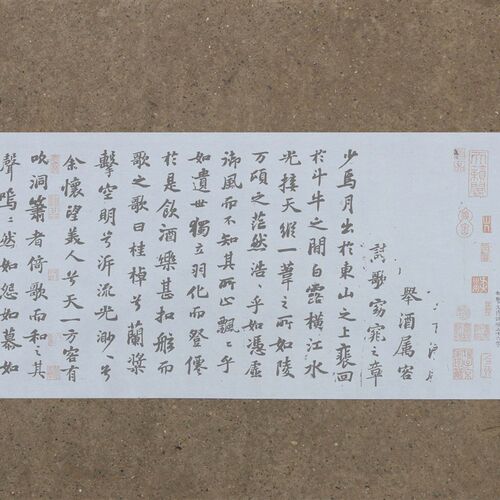 舉酒属客
歌窈窕之章
少焉月出於東山之上裵回
於斗牛之間白露橫江水
光接天縱一葦之所如陵
万頃之茫然浩〻乎如憑虛
御風而不知其所止飄〻乎
如遺世獨立羽化而登僊
於是飲酒樂甚扣舷而
歌之歌曰桂棹兮蘭槳
擊空明兮泝流光渺〻兮
余懷望美人兮天一方客有
吹洞簫者倚歌而和之其
聲嗚〻然如怨如慕如